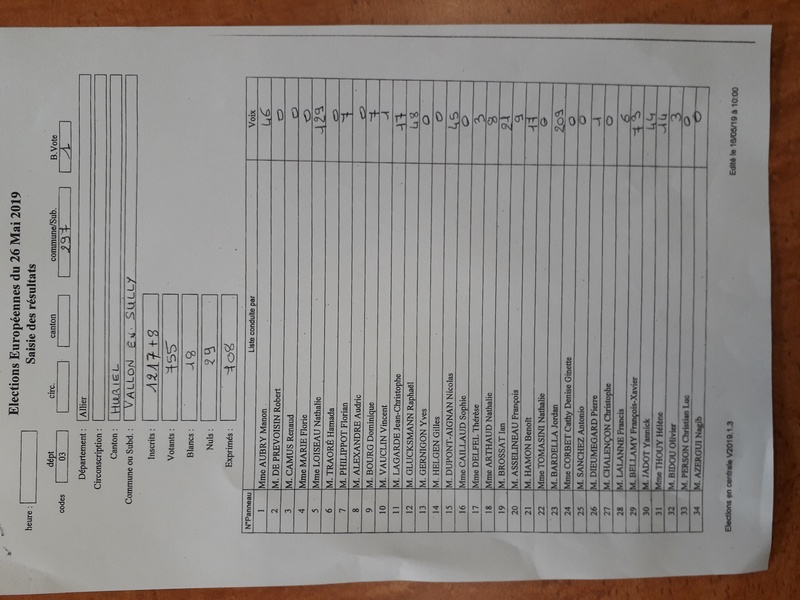 Elections Européennes du 26 Mai 2019
Saisie des résultats
heure :
dépt circ. canton commune/Sub. B.Vote
codes 03 297 1
Département : Allier
Circonscription :
Canton : HURIEL
Commune ou Subd. : VALLON EN SULLY
Inscrits : 1217+8
Votants : 755
Blancs : 18
Nuls : 29
Exprimés : 708
N°Panneau Liste conduite par Voix
1 Mme AUBRY Manon 46
2 M. DE PREVOISIN Robert 0
3 M. CAMUS Renaud 0
4 Mme MARIE Florie 0
5 Mme LOISEAU Nathalie 129
6 M. TRAORÉ Hamada 0
7 M. PHILIPPOT Florian 7
8 M. ALEXANDRE Audric 0
9 M. BOURG Dominique 7
10 M. VAUCLIN Vincent 1
11 M. LAGARDE Jean-Christophe 17
12 M. GLUCKSMANN Raphaël 48
13 M. GERNIGON Yves 0
14 M. HELGEN Gilles 0
15 M. DUPONT-AIGNAN Nicolas 45
16 Mme CAILLAUD Sophie 0
17 Mme DELFEL Thérèse 3
18 Mme ARTHAUD Nathalie 8
19 M. BROSSAT Ian 21
20 M. ASSELINEAU François 9
21 M. HAMON Benoît 17
22 Mme TOMASINI Nathalie 0
23 M. BARDELLA Jordan 209
24 Mme CORBET Cathy Denise Ginette 0
25 M. SANCHEZ Antonio 0
26 M. DIEUMEGARD Pierre 1
27 M. CHALENÇON Christophe 0
28 M. LALANNE Francis 6
29 M. BELLAMY François-Xavier 73
30 M. JADOT Yannick 44
31 Mme THOUY Hélène 14
32 M. BIDOU Olivier 3
33 M. PERSON Christian Luc 0
34 M. AZERGUI Nagib 0
Elections en centrale V2019.1.3 Edité le 16/05/19 à 10:00